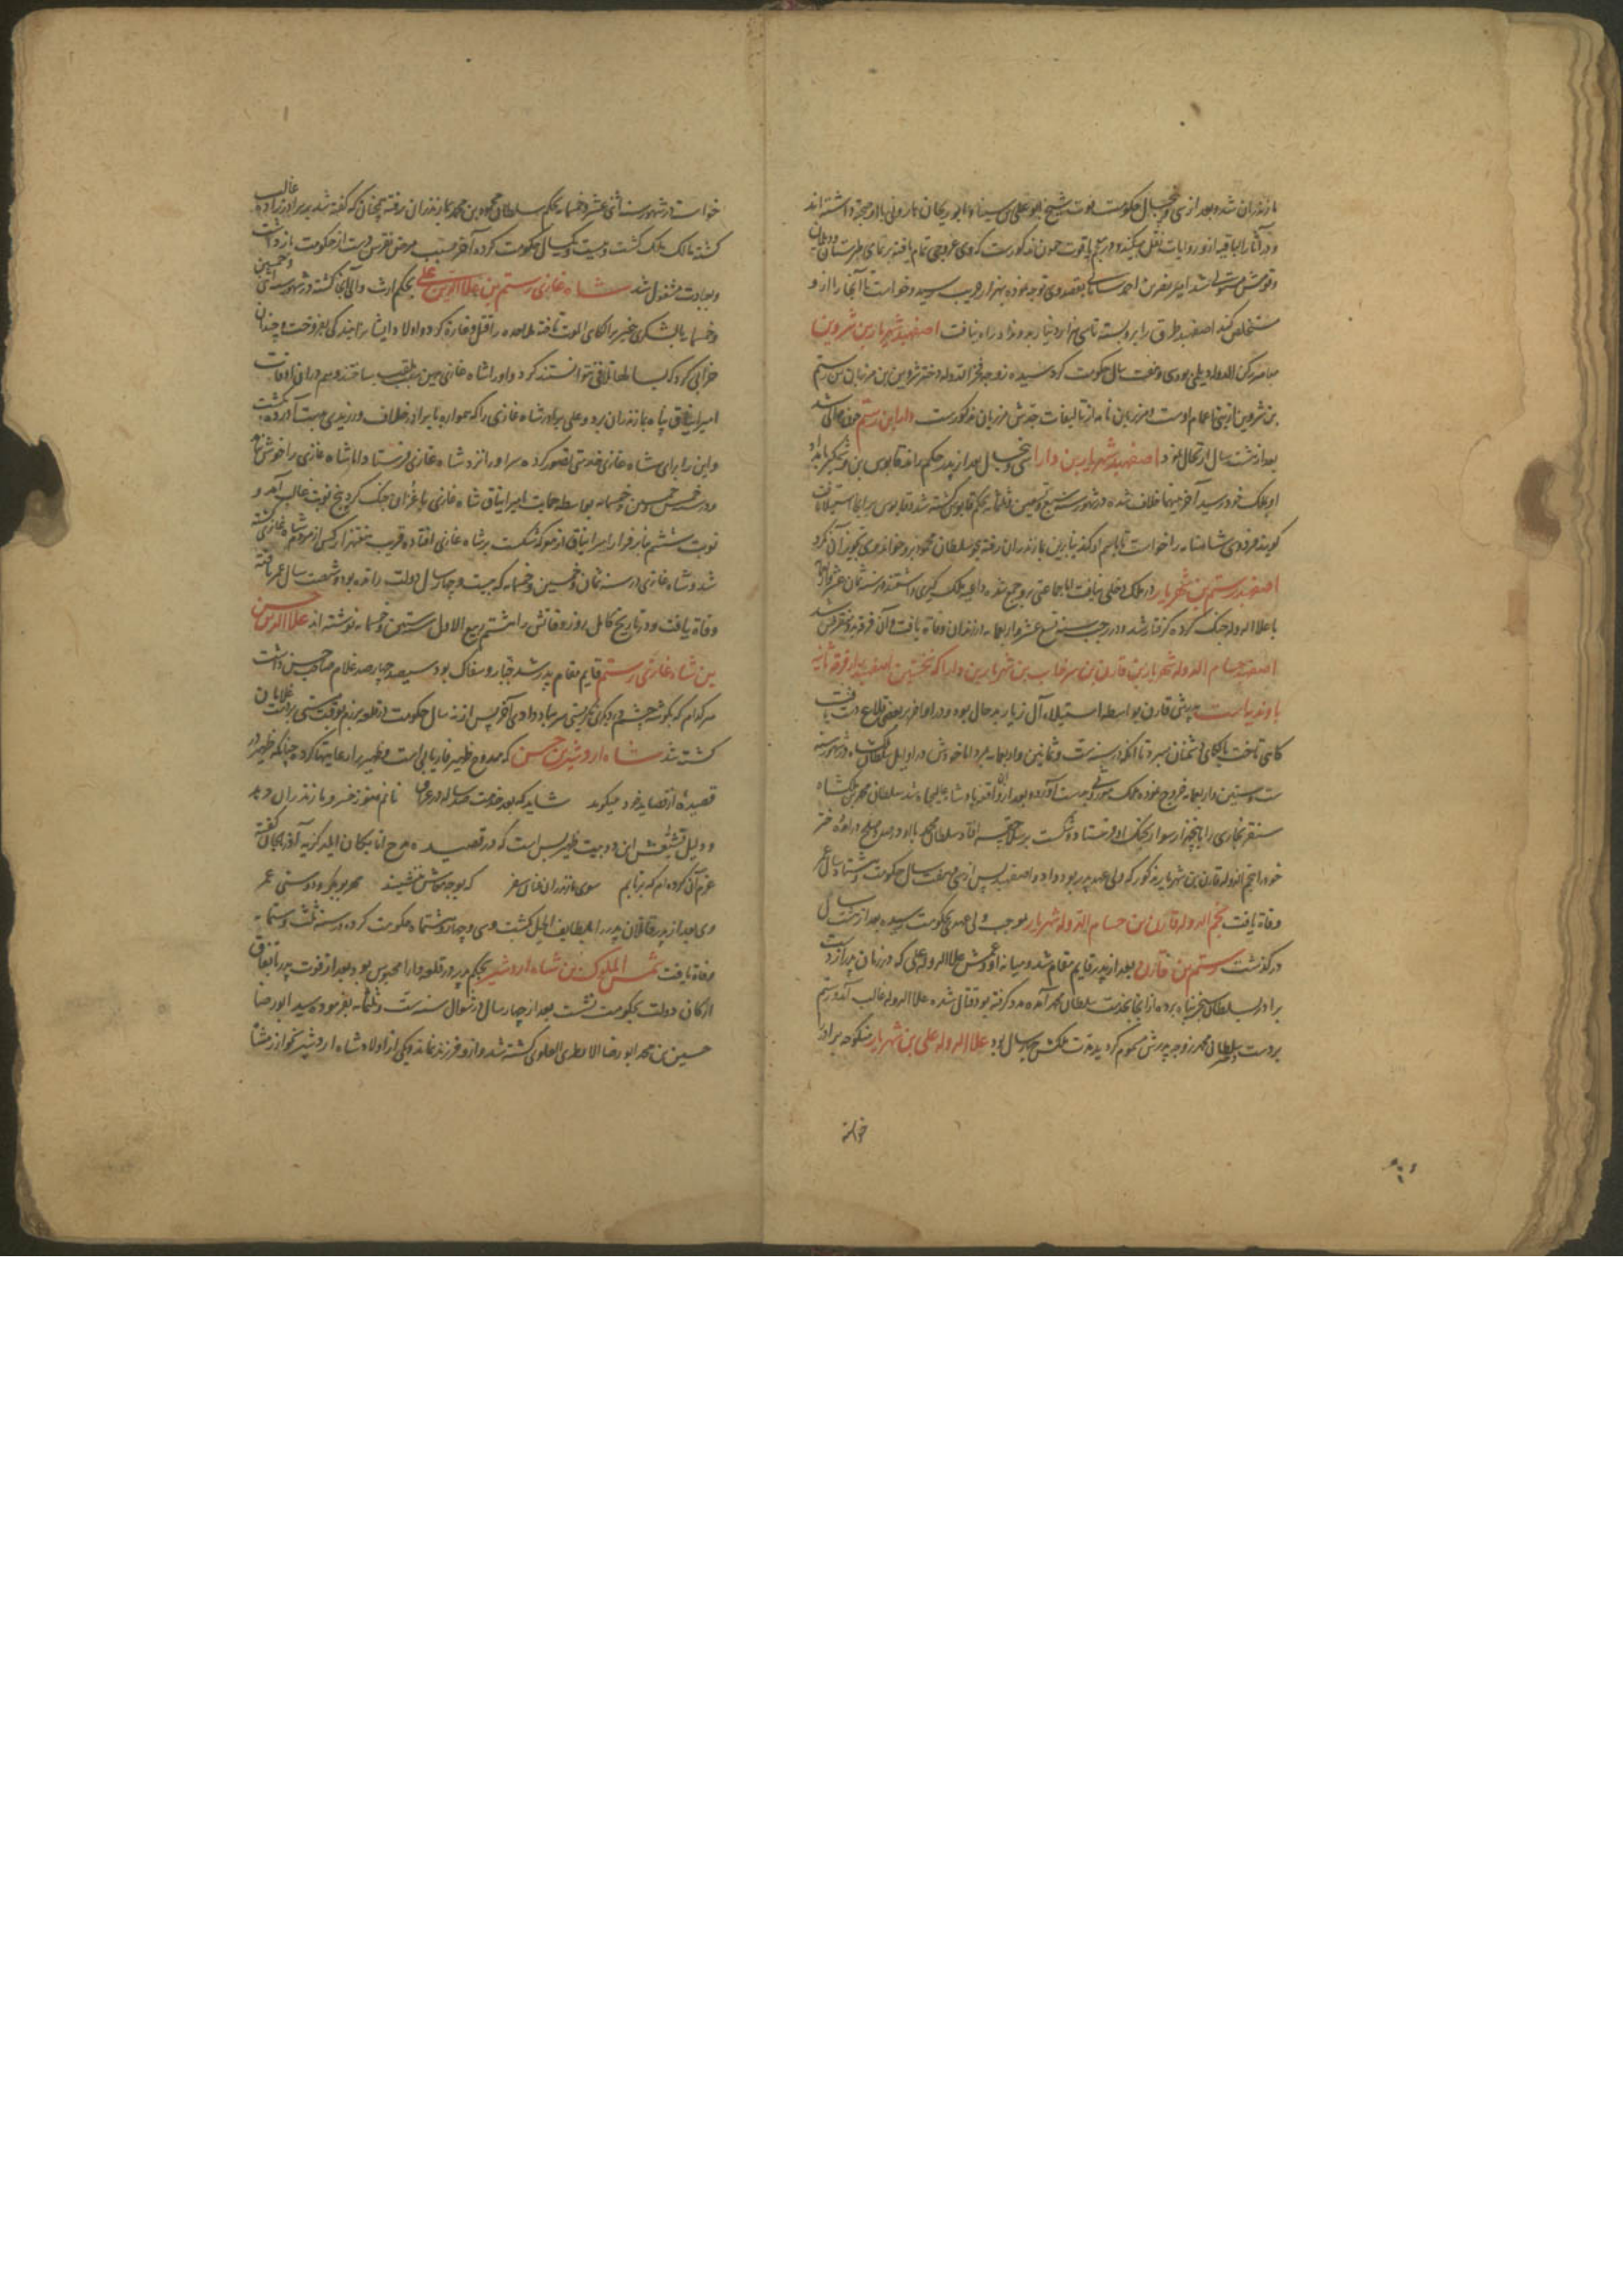 مازندران شده بعد از سی و پنج سال حکومت فوت شیخ ابو علی سینا و ابو ریحان بارونی با او صحبت داشته‌اند
و در آثار الباقیه از و روایات نقل میکند و مذکورست تمام یافته بر تمامی طبرستان
و قومش مستولی شد امیر نصر بن احمد سامانی بقصد وی توجه نموده بهزار جریب رسید و خواست تا آنجا را از و
مستخلص کند اصفهبد طرق را برو بسته تا سی هزار دینار بدو نداد راه نیافت اصفهبد شهریار بن شروین
معاصر رکن الدوله دیلمی بود سی و هفت سال حکومت کرد سیده زوجه فخر الدوله دختر شروین بن مرزبان بن رستم
بن شروین از بنی اعمام اوست و مرزبان نامه از تالیفات جدش مرزبان مذکورست دارا بن رستم چون حاکم شد
بعد از هشت سال ارتحال نمود اصفهبد شهریار بن دارا سی و پنج سال بعد از پدر حکم راند قابوس بن وشمگیر بامداد
او بملک خود رسید آخر بینهما خلاف شده در شهور سنه سبع و تسعین و ثلثمایه بحکم قابوس کشته شد و قابوس بر آنجا استیلا یافت
گویند فردوسی شاهنامه را خواست تا باسم او کند بنابرین بمازندران رفته بجهت سلطان محمود برو خواند وی تجویز آن نکرد
اصفهبد رستم بن شهریار در ملک دخلی نیافت اما جماعتی برو جمع شده داعیه ملک گیری داشتند در سنه ثمان عشر و اربعمایه
با علا الدوله جنگ کرده گرفتار شد و در رجب سنه تسع عشر و اربعمایه در زندان وفاة یافت و آن فرقه برو منقرض شد
اصفهبد حسام الدوله شهریار بن قارن بن سرخاب بن شهریار بن دارا که نخستین اصفهبد از فرقه ثانیه
باوندیه است پدرش قارن بواسطه استیلای آل زیار بدحال بوده و در اواخر بر بعضی قلاع دست یافت
گاهی تاخت بالکای دشمنان میبرد تا آنکه در سنه ست و ثمانین و اربعمایه بمرد اما خودش در اوایل سلطان ملکشاه در شهور سنه
ست و ستین و اربعمایه خروج نموده ملک موروثی بدست آورد و بعد از واقعه پادشاه عالیجاه شد سلطان محمد بن ملکشاه
سنقر بخاری را با پنجهزار سوار بجنگ او فرستاده شکست بر سنقر افتاد سلطان محمد با او در صلح درآمده دختر
خود را بنجم الدوله قارن بن شهریار مذکور که ولی عهد پدر بود داد و اصفهبد پس از سی و هفت سال حکومت و هشتاد سال عمر
وفاة یافت نجم الدوله قارن بن حسام الدوله شهریار بموجب ولی عهدی بحکومت رسیده بعد از هشت سال
درگذشت رستم بن قارن بعد از پدر قایم مقام شد و میانه او و عمش علا الدوله علی که در زمان پدر از دست
برادر بسلطان سنجر پناه برده و از آنجا بخدمت سلطان محمد آمده مدد گرفته بود قتال شده علا الدوله غالب آمد و رستم
بر دست سلطان محمد زوجه پدرش مسموم گردید مدت ملکش چهار سال بود علا الدوله علی بن شهریار منکوحه برادر
خواسته
خواست در شهور سنه اثنی عشر و خمسمایه بحکم سلطان محمود بن محمد بمازندران رفته چنانکه گفته شد بر برادرزاده غالب
گشته مالک ملک گشت و بیست و یک سال حکومت کرده آخر بسبب مرض نقرس دست از حکومت بازداشت
و بعبادت مشغول شد شاه غازی رستم بن علا الدین علی بحکم ارث والی آنجا گشته در شهور سنه اثنی و خمسین
و خمسمایه با لشکری بیخبر بر الکای الموت تاخته ملاحده را قتل و غارت کرد و اولاد ایشانرا ببندگی بفروخت و چندان
خرابی کرد که بسالها تلافی نتوانستند کرد و او را شاه غازی بدین سبب لقب ساختند و هم در ان اوقات
امیر ایتاق پناه بمازندران برد و علی برادر شاه غازی را که همواره با برادر خلاف ورزیدی بدست آورده بکشت
و این را برای شاه غازی خدمتی تصور کرده سر او را نزد شاه غازی فرستاد اما شاه غازی را خوش نیامد
و در سنه خمس خمسین و خمسمایه بواسطه حمایت امیر ایتاق شاه غازی با غزان جنگ کرد پنج نوبت غالب آمد و
نوبت ششم بنابر فرار امیر ایتاق از معرکه شکست بر شاه غازی افتاده قریب بهفتهزار کس از مردم شاه غازی کشته
شد و شاه غازی در سنه ثمان و خمسین و خمسمایه که بیست و چهار سال دولت رانده بود و شصت سال عمر یافته
وفاة یافت و در تاریخ کامل روز وفاتش را هشتم ربیع الاول سنه ستین و خمسمایه نوشته‌اند علا الدین حسن
بن شاه غازی رستم قایم مقام پدر شد جبار و سفاک بود سیصد چهارصد غلام صاحب حسن داشت
هر کدام که بگوشه چشم در دیگری نگریستی سر بباد دادی آخر پس از نه سال حکومت از ظلمه بزم بوقت مستی بر دست غلامان
کشته شد شاه اردشیر بن حسن که ممدوح ظهیر فاریابی است و ظهیر را رعایتها کرده چنانکه ظهیر در
قصیده از قصاید خود میگوید شاید که بعد خدمت ده ساله در عراق نانم هنوز خسرو مازندران دهد
و دلیل تشیعش این دو بیت ظهیر بس است که در قصیده مدح اتابکان ایلدگزیه آذربایجان گفته
عزم آن کرده‌ام که بربایم سوی مازندران عنان سفر که بوجه معاش ننشیند مهر بوبکر و دوستی عمر
وی بعد از پدر قاتلان پدر را بلطایف الحیل کشت و سی و چهار سال و ششماه حکومت کرده در سنه ثلث و ستمایه
وفاة یافت شمس الملوک بن شاه اردشیر بحکم پدر در قلعه دارا محبوس بود بعد از فوت پدر باتفاق
ارکان دولت بحکومت نشست بعد از چهار سال در شوال سنه ست و ثلثمایه بفرموده سید ابو رضا
حسین بن محمد ابو رضا العلوی کشته شد و ازو فرزند نماند و یکی از اولاد شاه اردشیر